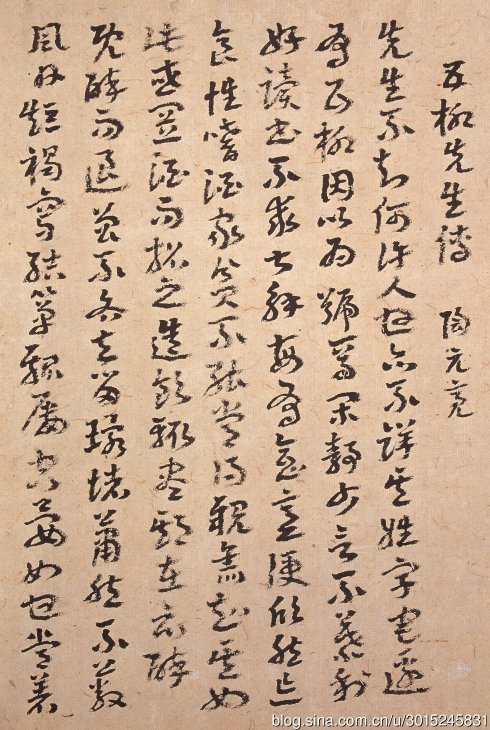 五柳先生傳 陶元亮
先生不知何許人也亦不詳其姓字宅邊
有五柳因以為號焉閑靜少言不慕榮利
好讀書不求甚解每有會意便欣然忘
食性嗜酒家貧不能常得親舊知其如
此或置酒而招之造飲輒盡期在必醉
既醉而退曾不吝去留環堵蕭然不蔽
風日短褐穿結簞瓢屢空晏如也常著
blog.sina.com.cn/u/3015245831